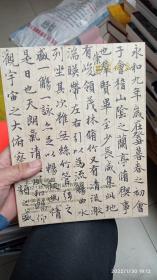 永和九年歲在癸丑暮春之初會
于會稽山陰之蘭亭脩稧事
也羣賢畢至少長咸集此地
有峻領茂林脩竹又有清流激
湍暎帶左右引以為流觴曲水
列坐其次雖無絲竹管弦
盛一觴一詠亦足以暢敘幽情
是日也天朗氣清
觀宇宙之大俯察